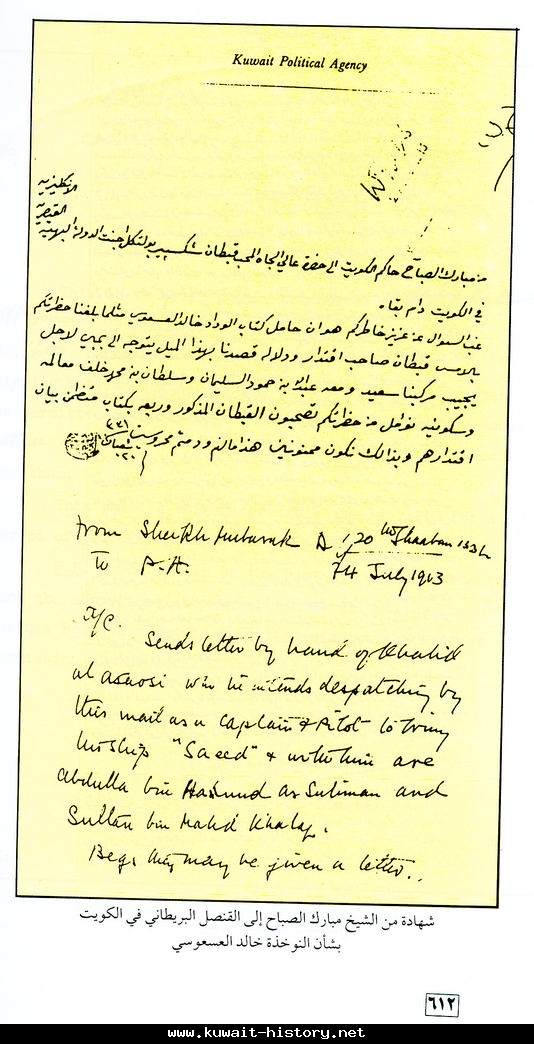 Kuwait Political Agency
الانكليزيه
القيصرية
من مبارك الصباح حاكم الكويت الى حضرة عالي الجاه المحب قبطان شكسبير بولتكل اجنت الدولة البهية
في الكويت دام بقاه
غب السوال عن عزيز خاطركم هو ان حامل كتاب الوداد خالد العسعوسي مثلما بلغنا حظرتكم
بالامس قبطان صاحب اقتدار ودلاله قصدنا بهذا الميل يتوجه الى بمبي لاجل
يجيب مركبنا سعيد ومعه عبدالله بن حمود السليمان وسلطان بن محمد خلف معالمه
وسكونيه نؤمل من حظرتكم تصحبون القبطان المذكور وربعه بكتاب متظمن بيان
اقتدارهم وبذالك نكون ممنونين هذا مالزم ودمتم محروسين
from Sheikh Mubarak D/ 20th Shaaban 1331
To P.A. 24 July 1913
A/C.
Sends letter by hand of Khalid
al asaosi who he intends despatching by
this mail as a captain & Pilot to bring
his ship "Saeed" & with him are
Abdulla bin Hamud as Suliman and
Sultan bin Mahd Khalaf.
Begs they may be given a letter..
شهادة من الشيخ مبارك الصباح إلى القنصل البريطاني في الكويت
بشأن النوخذة خالد العسعوسي
٦١٢
www.kuwait-history.net